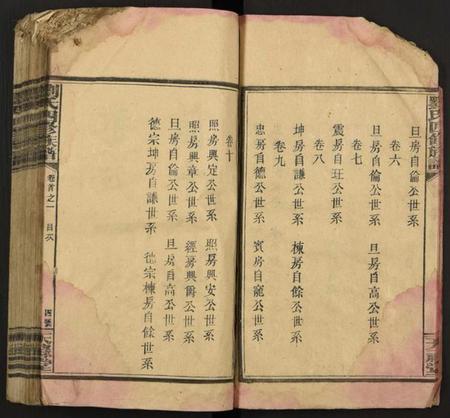 劉氏四修族譜
旦房自倫公世系
卷六
旦房自倫公世系 旦房自高公世系
卷七
震房自玨公世系
卷八
坤房自謙公世系 棟房自餘公世系
卷九
忠房自公世系 賓房自寵公世系
卷十
照房興定公世系 照房興安公世系
照房興章公世系 經房興爵公世系
旦房自倫公世系 旦房自高公世系
德宗坤房自謙世系 德宗棟房自餘世系
劉氏四修族譜
卷首之一 目次